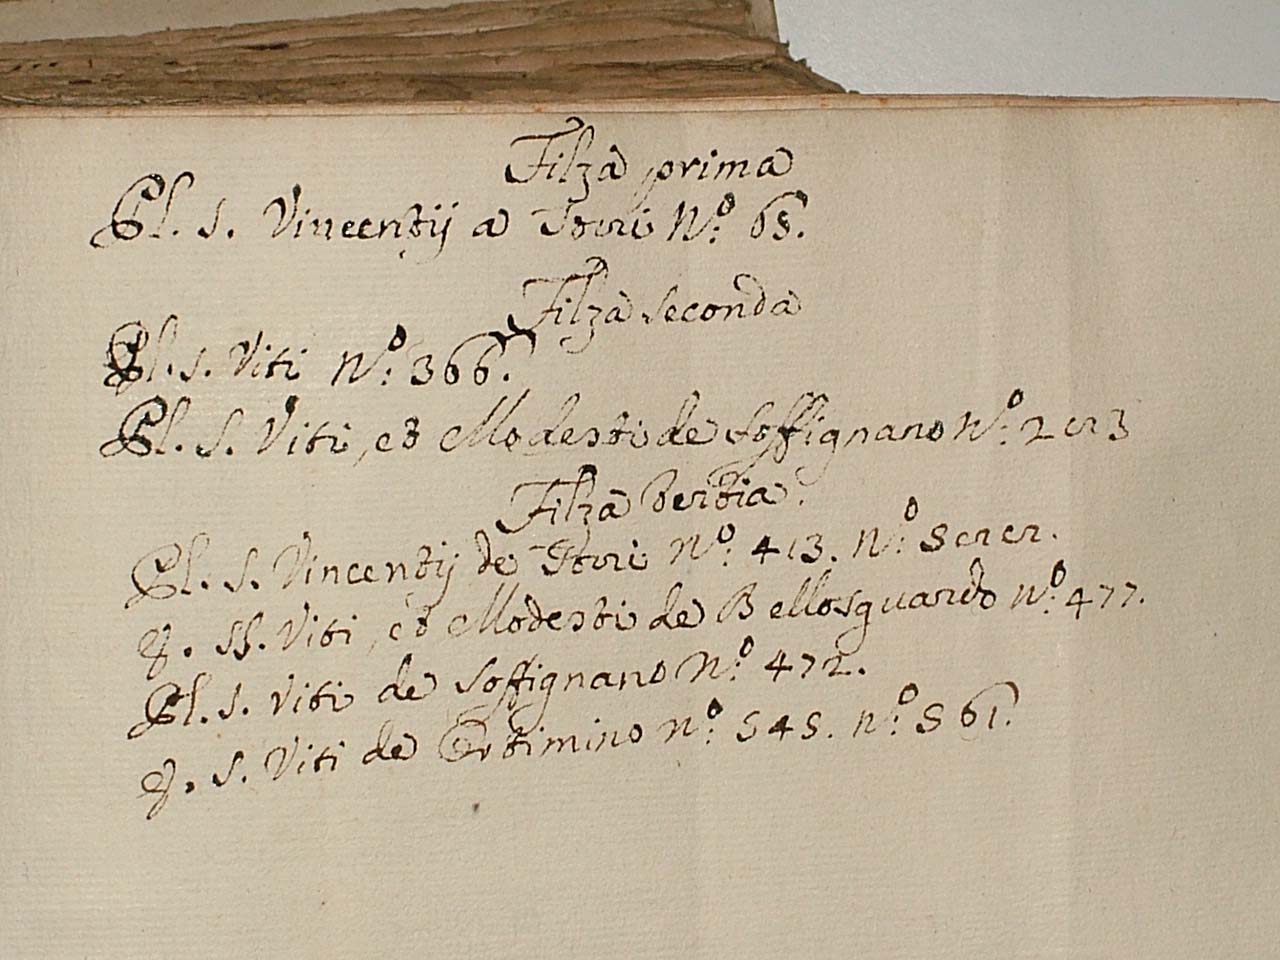 Filza prima
Pl. S. Vincentij a Torri N.º 65.
Filza seconda
Pl. S. Viti N.º 366.
Pl. S. Viti, et Modesti de Soffignano N.º 293
Filza tertia.
Pl. S. Vincentij de Torri N.º 413. N.º 599.
SS. Viti, et Modesti de Bellosguardo N.º 477.
Pl. S. Viti de Soffignano N.º 472.
S. Viti de Artimino N.º 545. N.º 561.